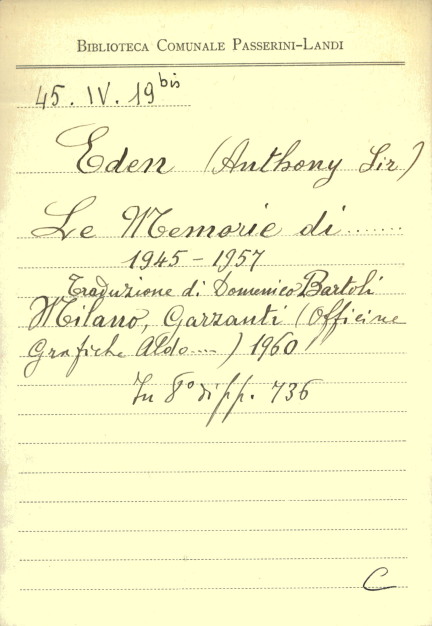 BIBLIOTECA COMUNALE PASSERINI-LANDI
45. IV. 19 bis
Eden (Anthony Sir)
Le Memorie di .......
1945 - 1957
Traduzione di Domenico Bartoli
Milano, Garzanti (Officine
Grafiche Aldo ....) 1960
In 8° di pp. 736
C